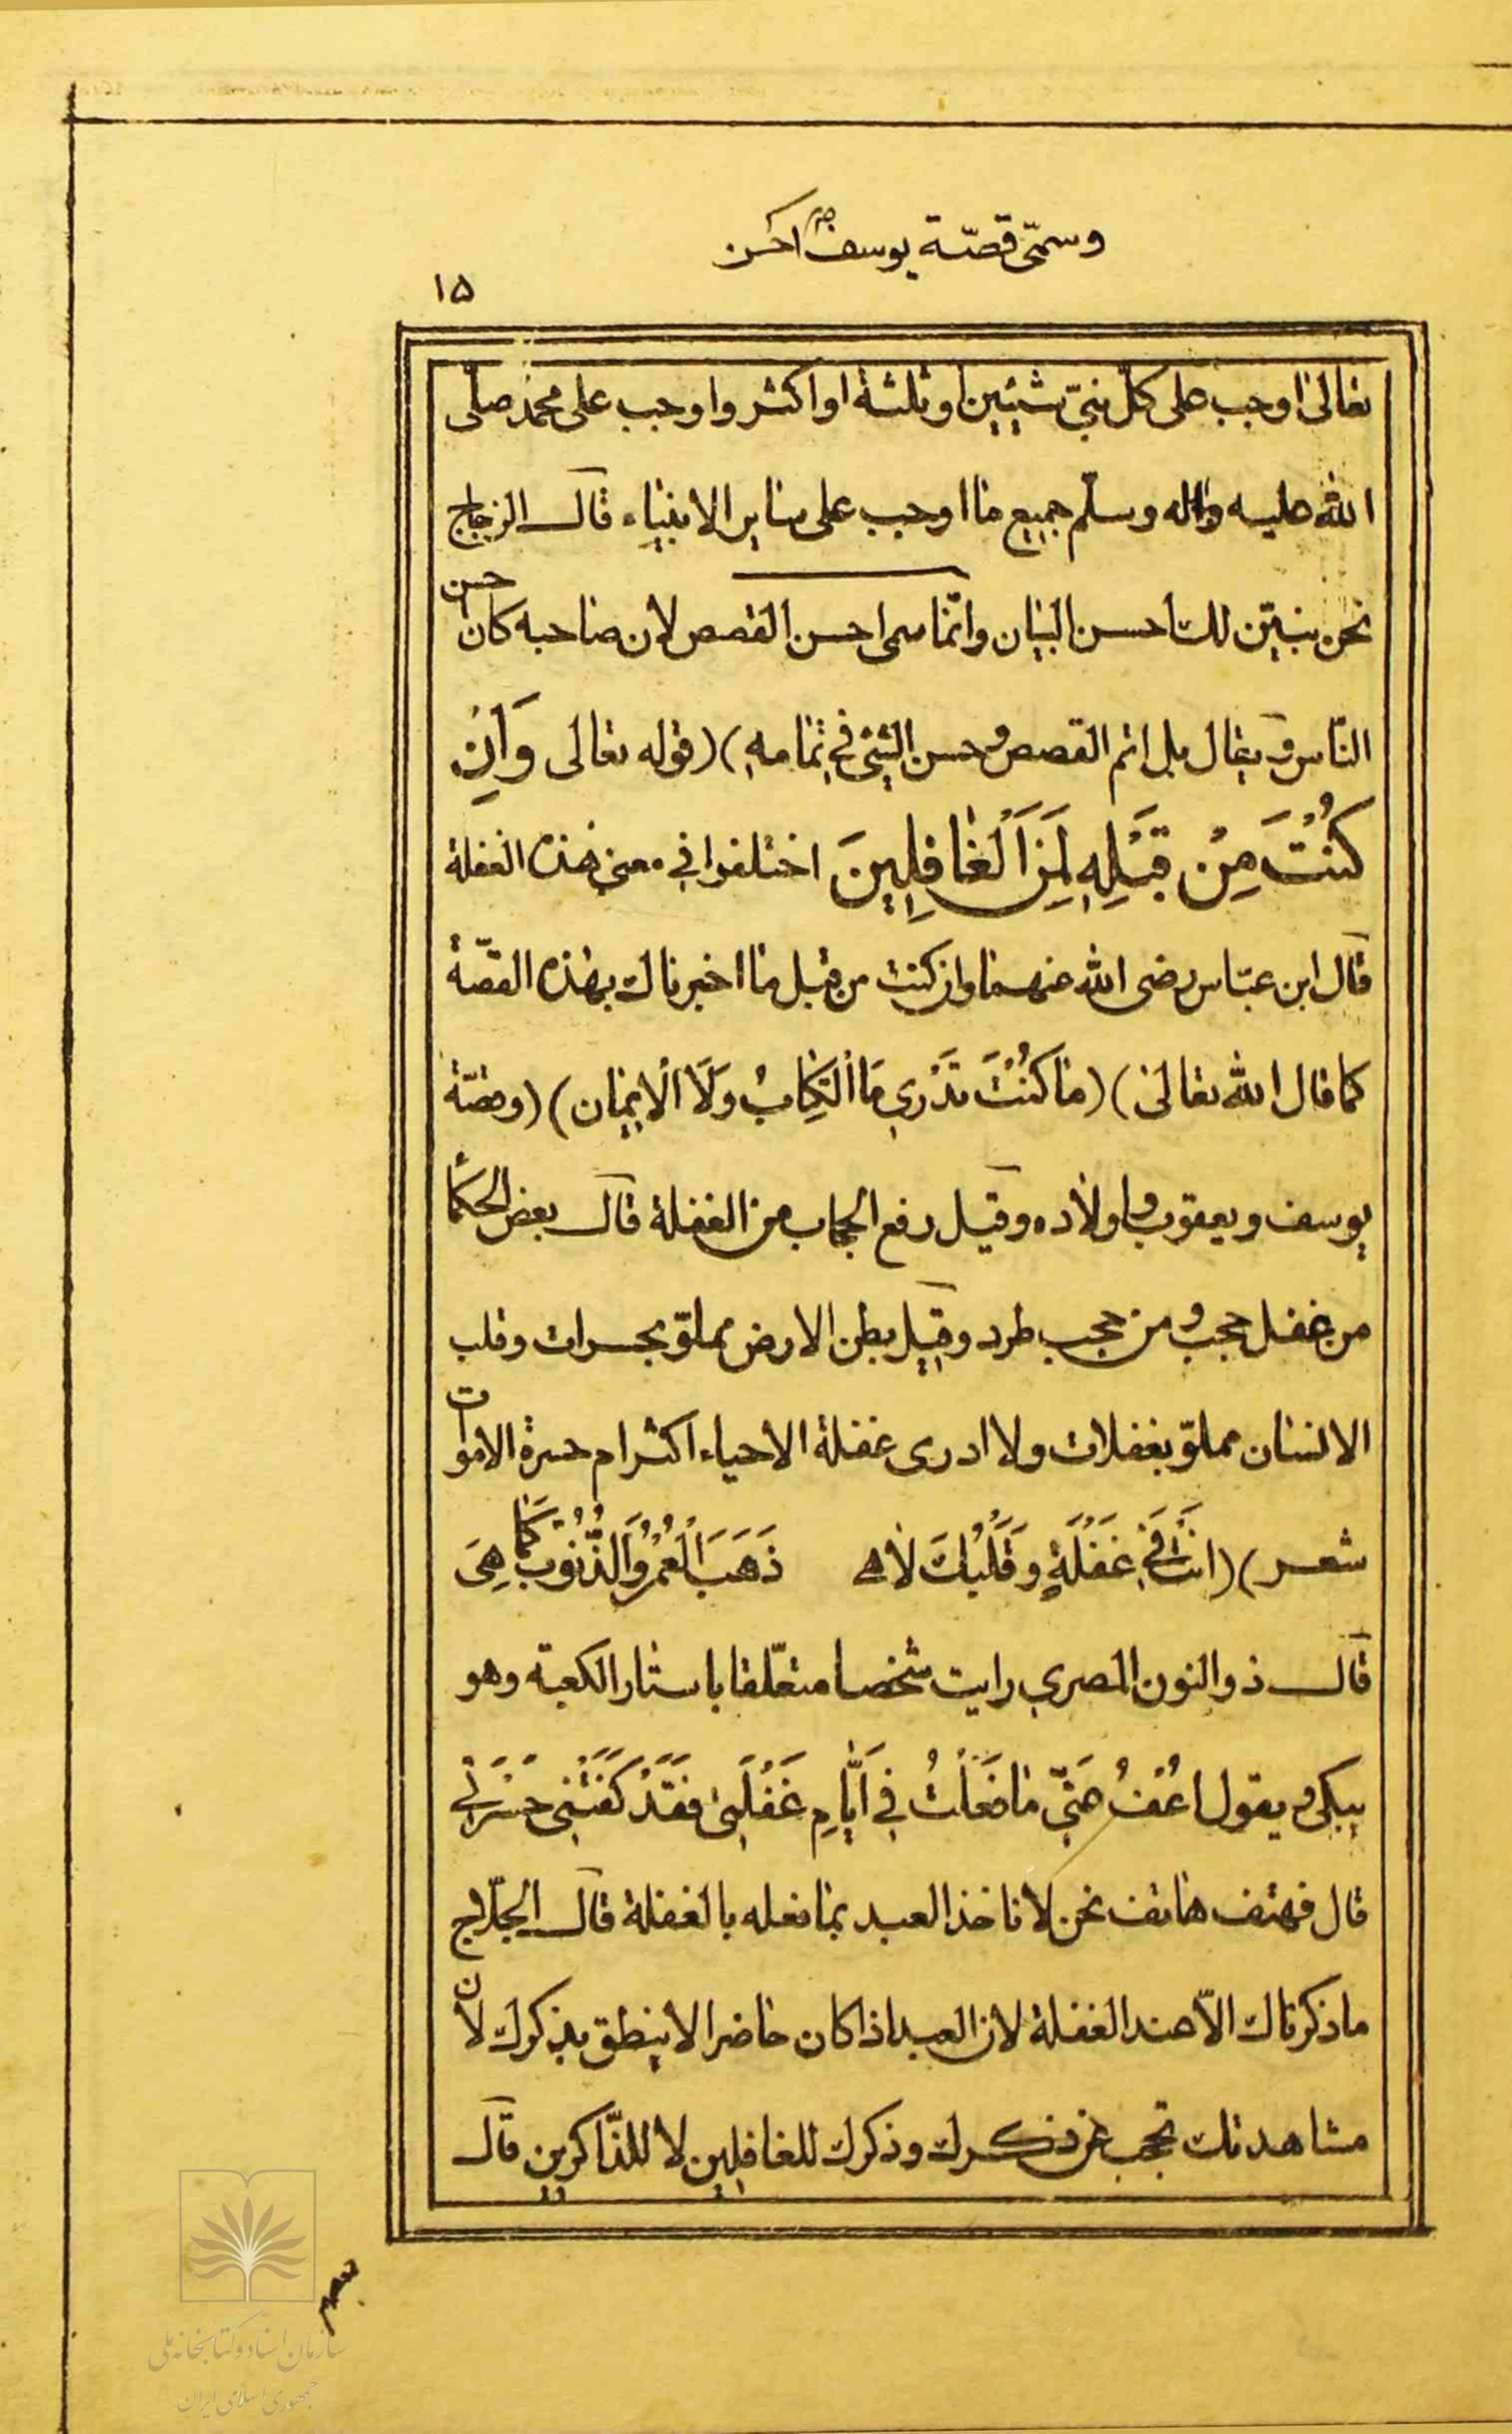 وسمّی قصّة یوسف احسن
۱۵
تعالی اوجب علی کلّ نبیّ شیئین او ثلثة او اکثر و اوجب علی محمد صلّی
الله علیه واله وسلّم جمیع ما اوجب علی سایر الانبیاء قال الزجاج
نحن نبیّن لك احسن البیان وانّما سمی احسن القصص لان صاحبه کان احسن
الناس و یقال بل اتم القصص و حسن الشئ فی تمامه) (قوله تعالی وَاِنْ
کُنْتَ مِنْ قَبْلِهِ لَمِنَ الْغَافِلِینَ اختلفوا فی معنی هذه الغفلة
قال ابن عبّاس رضی الله عنهما وان کنت من قبل ما اخبرناك بهذه القصّة
کما قال الله تعالی) (مَا کُنْتَ تَدْرِی مَا الْکِتَابُ وَلَا الْاِیمَان) (وقصّة
یوسف و یعقوب و اولاده و قیل رفع الحجاب من الغفلة قال بعض الحکماء
من غفل حجب و من حجب طرد و قیل بطن الارض مملوّ بحسرات و قلب
الانسان مملوّ بغفلات و لا ادری غفلة الاحیاء اکثر ام حسرة الاموات
شعر) (انت فِی غَفْلَةٍ وَ قَلْبُكَ لَاهی ذَهَبَ الْعُمْرُ وَالذُّنُوبُ کَمَا هِیَ
قال ذوالنون المصری رایت شخصا متعلّقا باستار الکعبة وهو
یبکی و یقول اعْفُ عَنِّی مَا فَعَلْتُ فِی اَیَّامِ غَفْلَتِی فَقَدْ کَفَتْنِی حَسْرَتِی
قال فهتف هاتف نحن لا ناخذ العبد بما فعله بالغفلة قال الحلّاج
ما ذکرناك الّا عند الغفلة لان العبد اذا کان حاضرا لا ینطق بذکرك لان
مشاهدتك تحجب عن ذکرك و ذکرك للغافلین لا للذّاکرین قال
سازمان اسناد و کتابخانه ملی
جمهوری اسلامی ایران